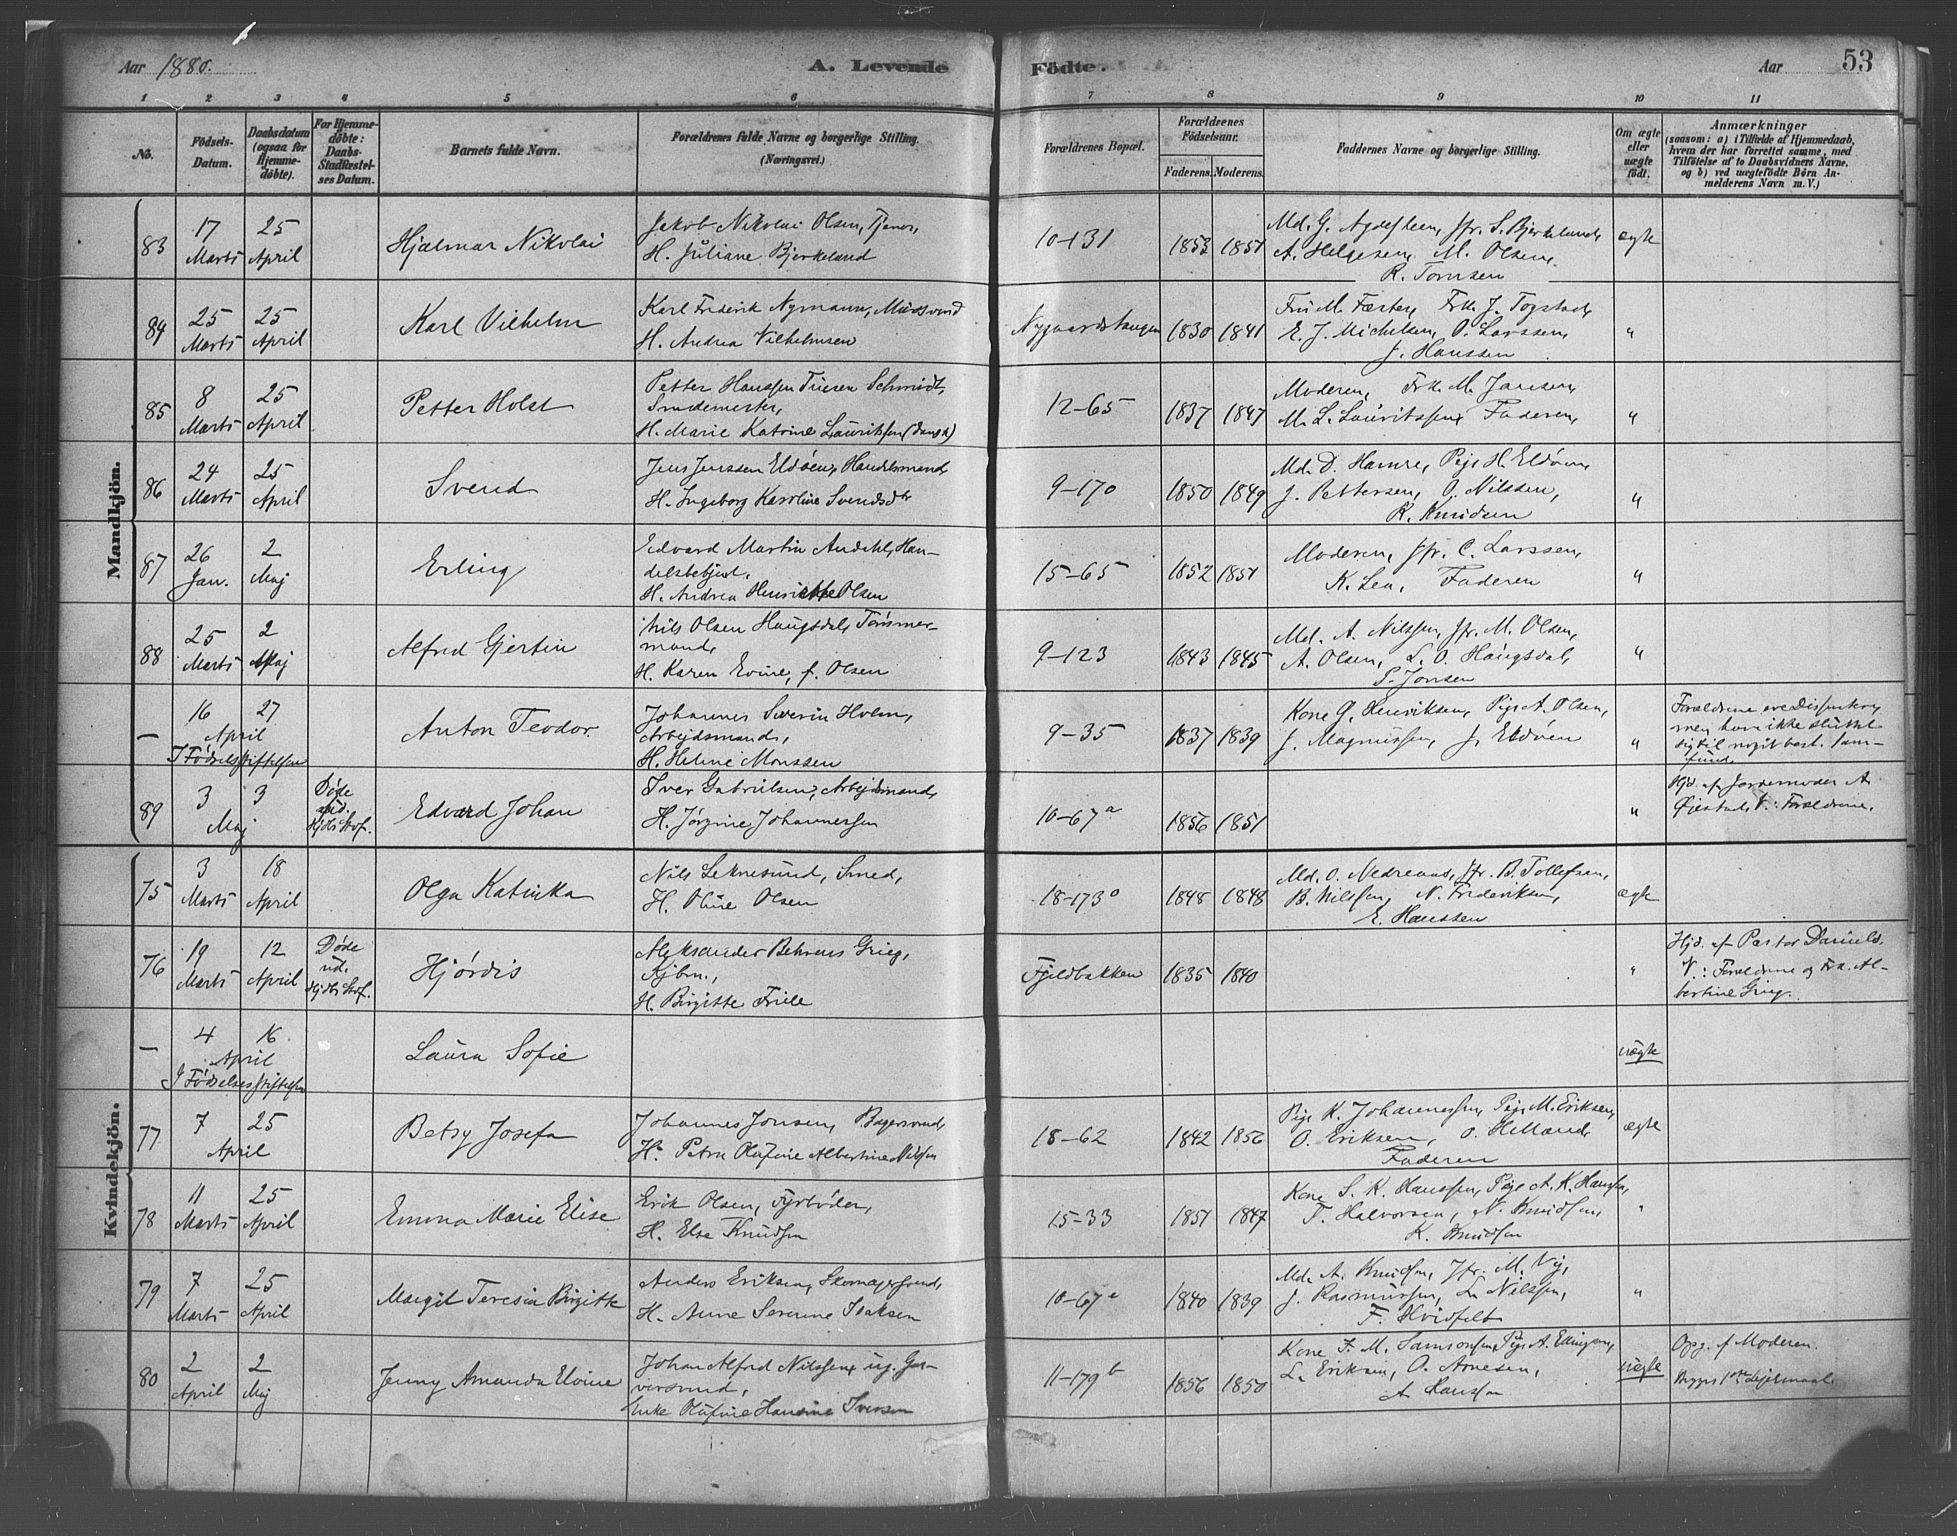 Aar 1880.
A. Levende
Födte.
Aar
53
1 2 3 4 5 6 7 8 9 10 11
No.
Födsels-
Datum.
Daabsdatum
(ogsaa for
Hjemme-
döbte).
For Hjemme-
döbte:
Daabs-
Stadfæstel-
ses Datum.
Barnets fulde Navn.
Forældrenes fulde Navne og borgerlige Stilling.
(Næringsvei.)
Forældrenes Bopæl.
Forældrenes
Födselsaar.
Faderens. Moderens.
Faddernes Navne og borgerlige Stilling.
Om ægte
eller
uægte
födt.
Anmærkninger
(saasom: a) i Tilfælde af Hjemmedaab,
hvem der har forrettet samme, med
Tilföielse af to Daabsvidners Navne,
og b) ved uægtefödte Börn An-
melderens Navn m. V.)
Mandkjön.
83
17
Marts
25
April
Hjalmar Nikolai
Jakob Nikolai Olsen, Tjener,
H. Juliane Bjerkeland
10-131
1853
1851
Md. G. Agdesteen, Jfr. S. Bjerkeland,
A. Helgesen, M. Olsen,
R. Tomsen
ægte
84
25
Marts
25
April
Karl Vilhelm
Karl Frederik Nymann, Murssvend
H. Andrea Vilhelmsen
Nygaardstangen
1830
1841
Fru M. Fæster, Frk. J. Togstad,
E. J. Michelsen, O. Larssen,
J. Hanssen
"
85
8
Marts
25
April
Petter Holst
Petter Hanssen Friesen Schmidt,
Smedemester,
H. Marie Katrine Lauritssen (dansk)
12-65
1837
1847
Moderen, Frk. M. Jansen,
M. L. Lauritssen, Faderen,
"
86
24
Marts
25
April
Svend
Jens Jenssen Eldøen, Handelsmand,
H. Ingeborg Karoline Svendsdtr
9-170
1850
1849
Md. D. Hamre, Pige H. Eldøen,
J. Pettersen, O. Nilssen,
R. Knudsen
"
87
26
Jan.
2
Maj
Erling
Edvard Martin Andahl, Han-
delsbetjent,
H. Andrea Henrikke Olsen
15-65
1852
1851
Moderen, Jfr. C. Larssen,
K. Lea, Faderen
"
88
25
Marts
2
Maj
Alfred Gjertin
Nils Olsen Haugsdal, Tømmer-
mand,
H. Karen Evine, f. Olsen
9-123
1843
1845
Md. A. Nilssen, Jfr. M. Olsen,
A. Olsen, L. O. Haugsdal,
S. Jonsen
"
—
16 27
April
I Fødselsstiftelsen
Anton Teodor
Johannes Severin Holm,
Arbejdsmand,
H. Heline Monssen
9-35
1837
1839
Kone G. Henriksen, Pige A. Olsen,
J. Magnussen, J. Eldøen
"
Forældrene ere Dissentere,
men have ikke sluttet
sig til noget best. Sam-
fund.
89
3 3
Maj
Døde
ud.
Hjdb. Stdf.
Edvard Johan
Iver Gabrielsen, Arbejdsmand,
H. Jørgine Johannessen
10-67a
1856
1851
"
Hjd. af Jordemoder A.
Øiestad, V.: Forældrene.
Kvindekjön.
75
3
Marts
18
April
Olga Katinka
Nils Leknesund, Smed,
H. Oline Olsen
18-173o
1848
1848
Md. O. Nedreaas, Jfr. B. Tollefsen,
B. Nilssen, N. Frederiksen,
E. Hanssen
ægte
76
19
Marts
12
April
Døde
ud.
Hjdb. Stdf.
Hjørdis
Aleksander Behrens Grieg,
Kjbm.,
H. Birgitte Friele
Fjeldbakken
1835
1840
"
Hjd. af Pastor Daniels.
V.: Forældrene og Frk. Al-
bertine Grieg.
—
4 16
April
I Fødselsstiftelsen
Laura Sofie
uægte
77
7 25
April
Betsy Josefa
Johannes Jonsen, Bagersvend,
H. Petra Olufine Albertine Nilssen
18-62
1842
1856
Pige K. Johannessen, Pige M. Eriksen,
O. Eriksen, O. Helland,
Faderen
ægte
78
11
Marts
25
April
Emma Marie Elise
Erik Olsen, Fyrbøder,
H. Else Knudsen
15-33
1851
1847
Kone S. K. Hanssen, Pige A. K. Hanssen,
T. Halvorsen, N. Knudsen,
K. Knudsen
"
79
7
Marts
25
April
Margit Teresia Birgitte
Anders Eriksen, Skomagersvend,
H. Anne Serine Isaksen
10-67e
1840
1839
Md. A. Knudsen, Jfr. M. Vij,
J. Rasmussen, L. Nilssen,
F. Hvidfelt
"
80
2
April
2
Maj
Jenny Amanda Elvine
Johan Alfred Nilssen, ug. Gar-
versvend,
Enke Olufine Hansine Iversen
11-179b
1856
1850
Kone F. M. Samsonsen, Pige A. Ellingsen,
L. Eriksen, O. Arnesen,
A. Hanssen
uægte
Opg. af Moderen.
Begges 1ste Lejermaal.